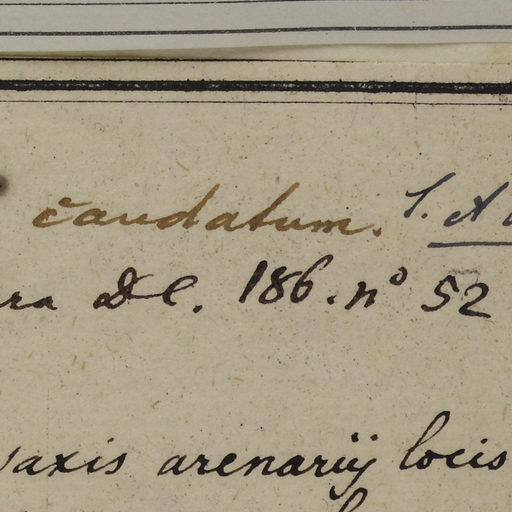 caudatum. S. A
ra DC. 186. n° 52
saxis arenarijs locis